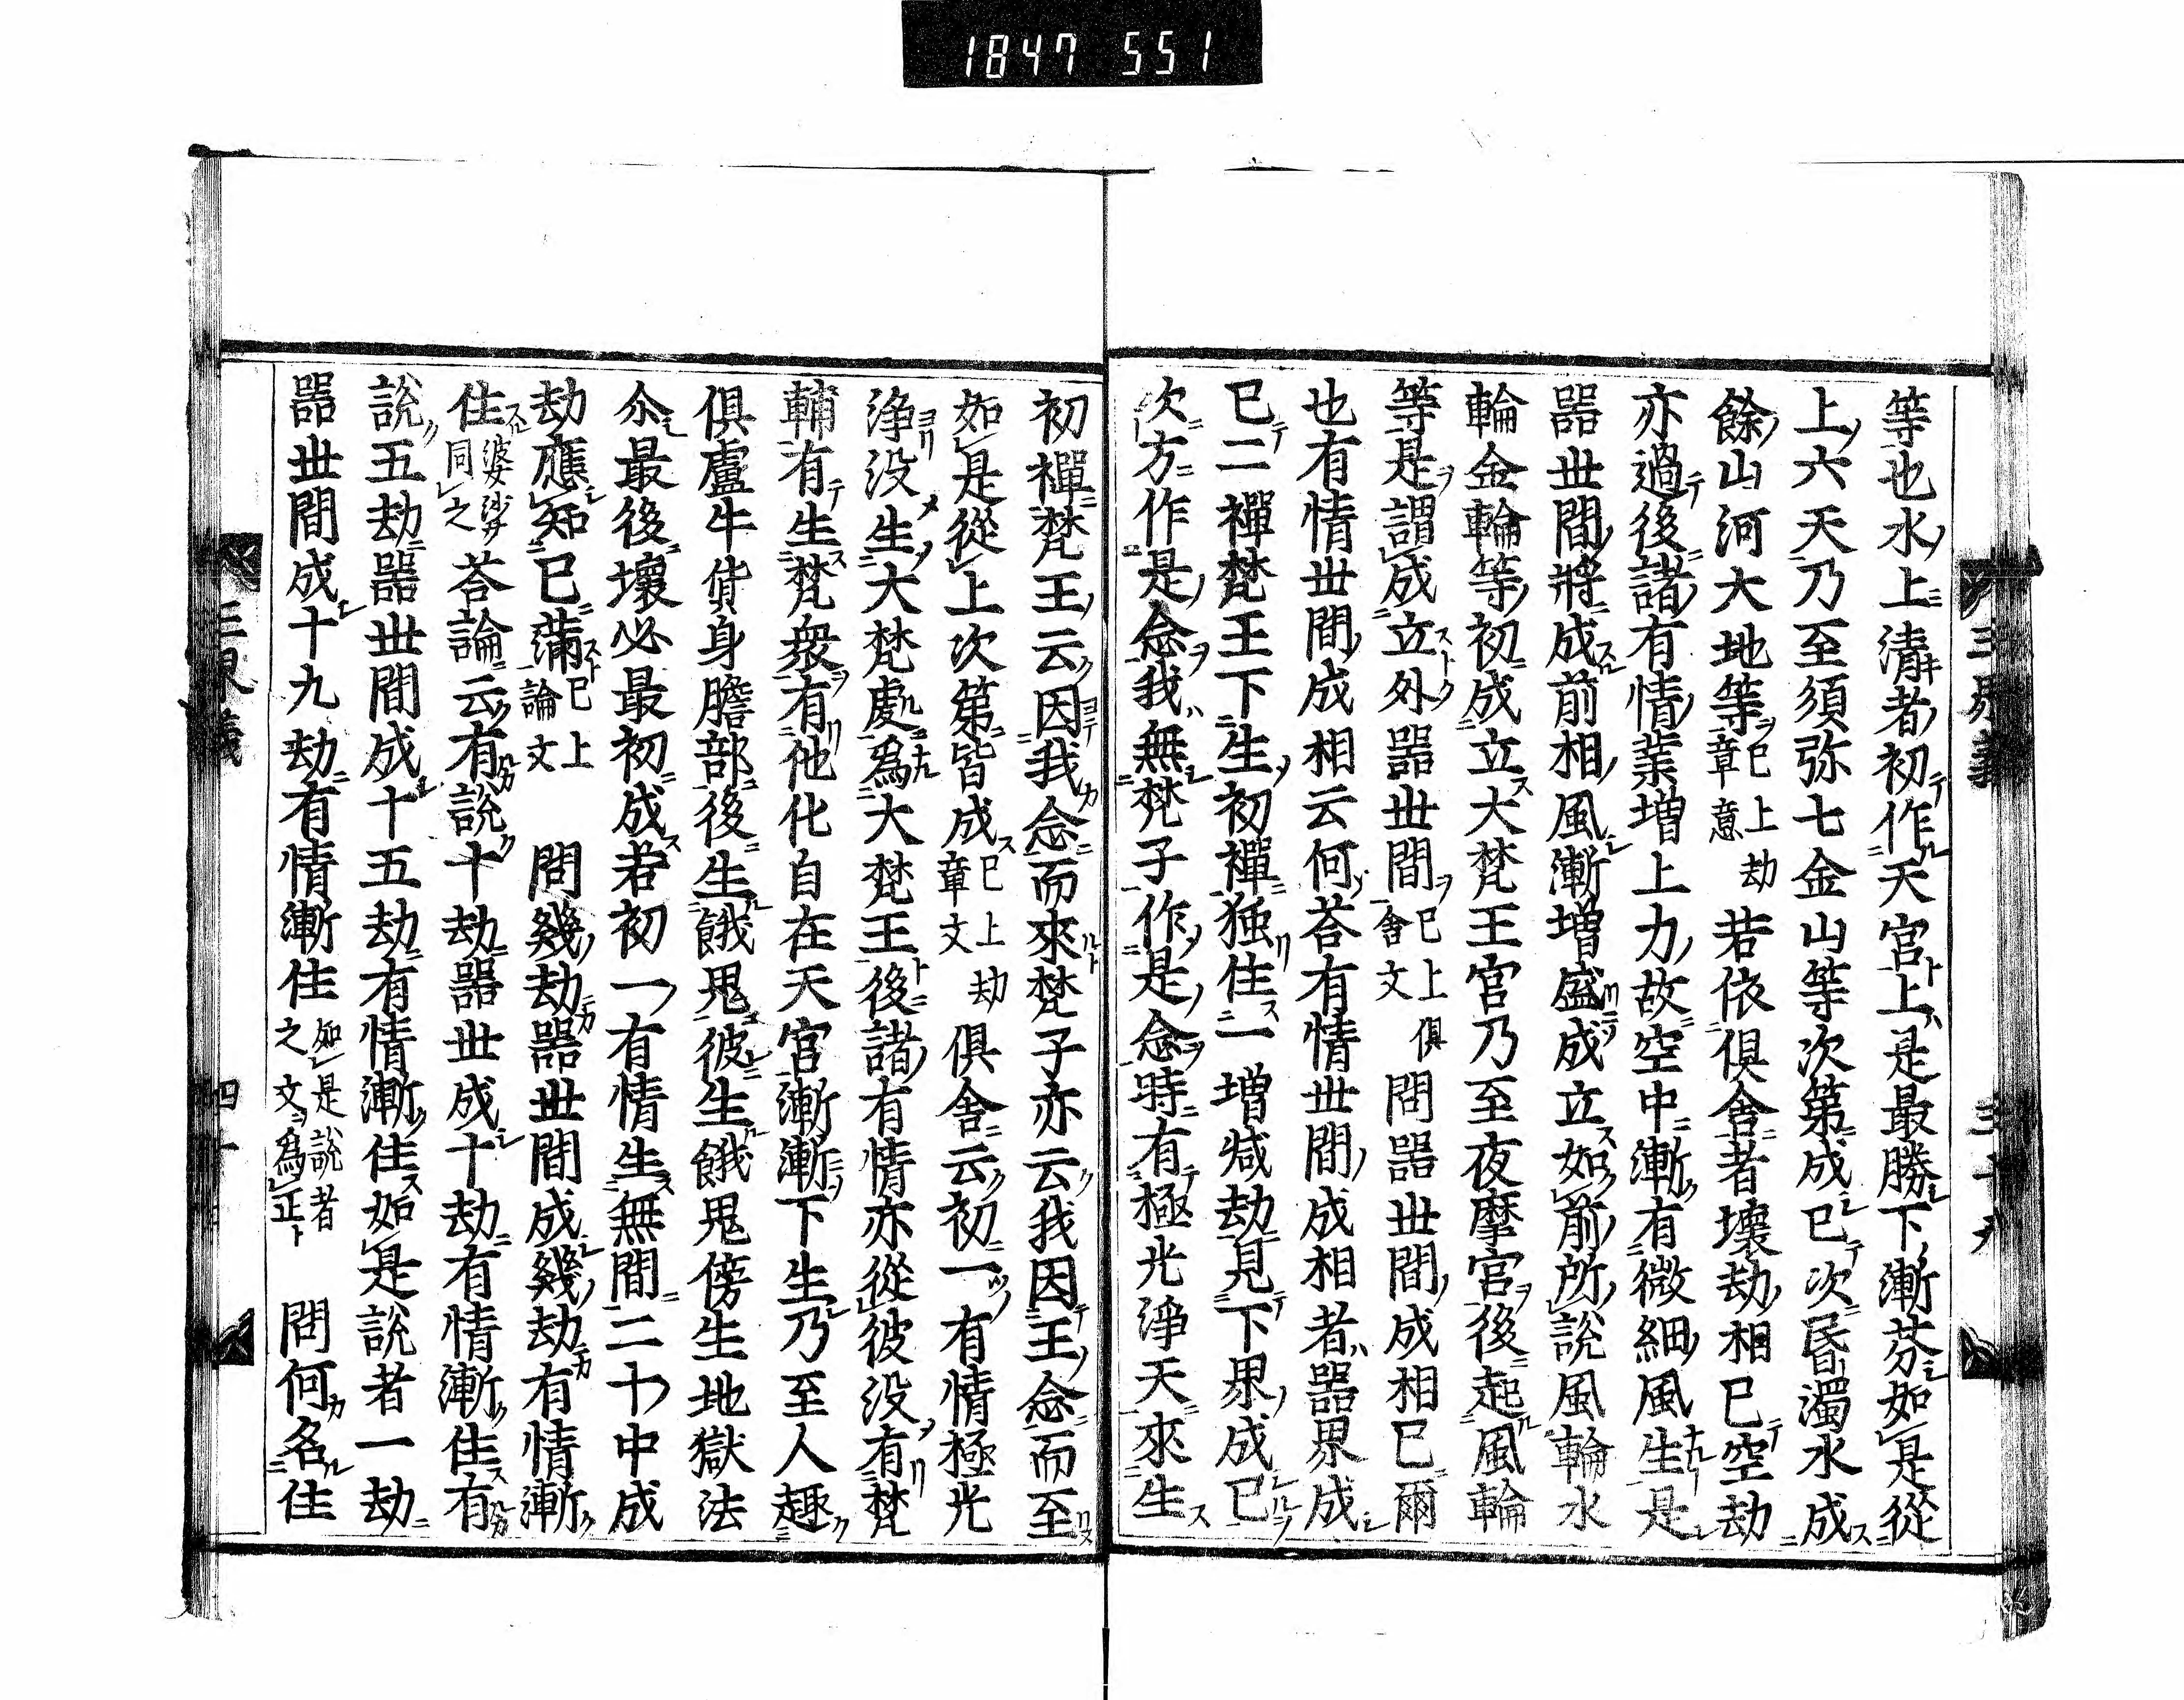 1847 551
等也水上清者初作天宮上是最勝下漸芬如是從
上六天乃至須弥七金山等次第成已次昏濁水成
餘山河大地等已上劫章意若依俱舍者壞劫相已空劫
亦過後諸有情業増上力故空中漸有微細風生是
器世間將成前相風漸増盛成立如前所說風輪水
輪金輪等初成立大梵王宮乃至夜摩宮後起風輪
等是謂成立外器世間已上俱舍文問器世間成相已爾
也有情世間成相云何荅有情世間成相者器界成
已二禪梵王下生初禪獨住一増減劫見下界成已
次方作是念我無梵子作是念時有極光淨天來生
初禪梵王云因我念而來梵子亦云我因王念而至
如是從上次第皆成已上劫章文俱舍云初一有情極光
淨没生大梵處為大梵王後諸有情亦從彼没有梵
輔有生梵衆有他化自在天宮漸漸下生乃至人趣
俱盧牛貨身贍部後生餓鬼彼生餓鬼傍生地獄法
尒最後壞必最初成若初一有情生無間二十中成
劫應知已滿已上論文問幾劫器世間成幾劫有情漸
住婆沙同之荅論云有說十劫器世成十劫有情漸住有
說五劫器世間成十五劫有情漸住如是說者一劫
器世間成十九劫有情漸住如是說者之文為正問何名住